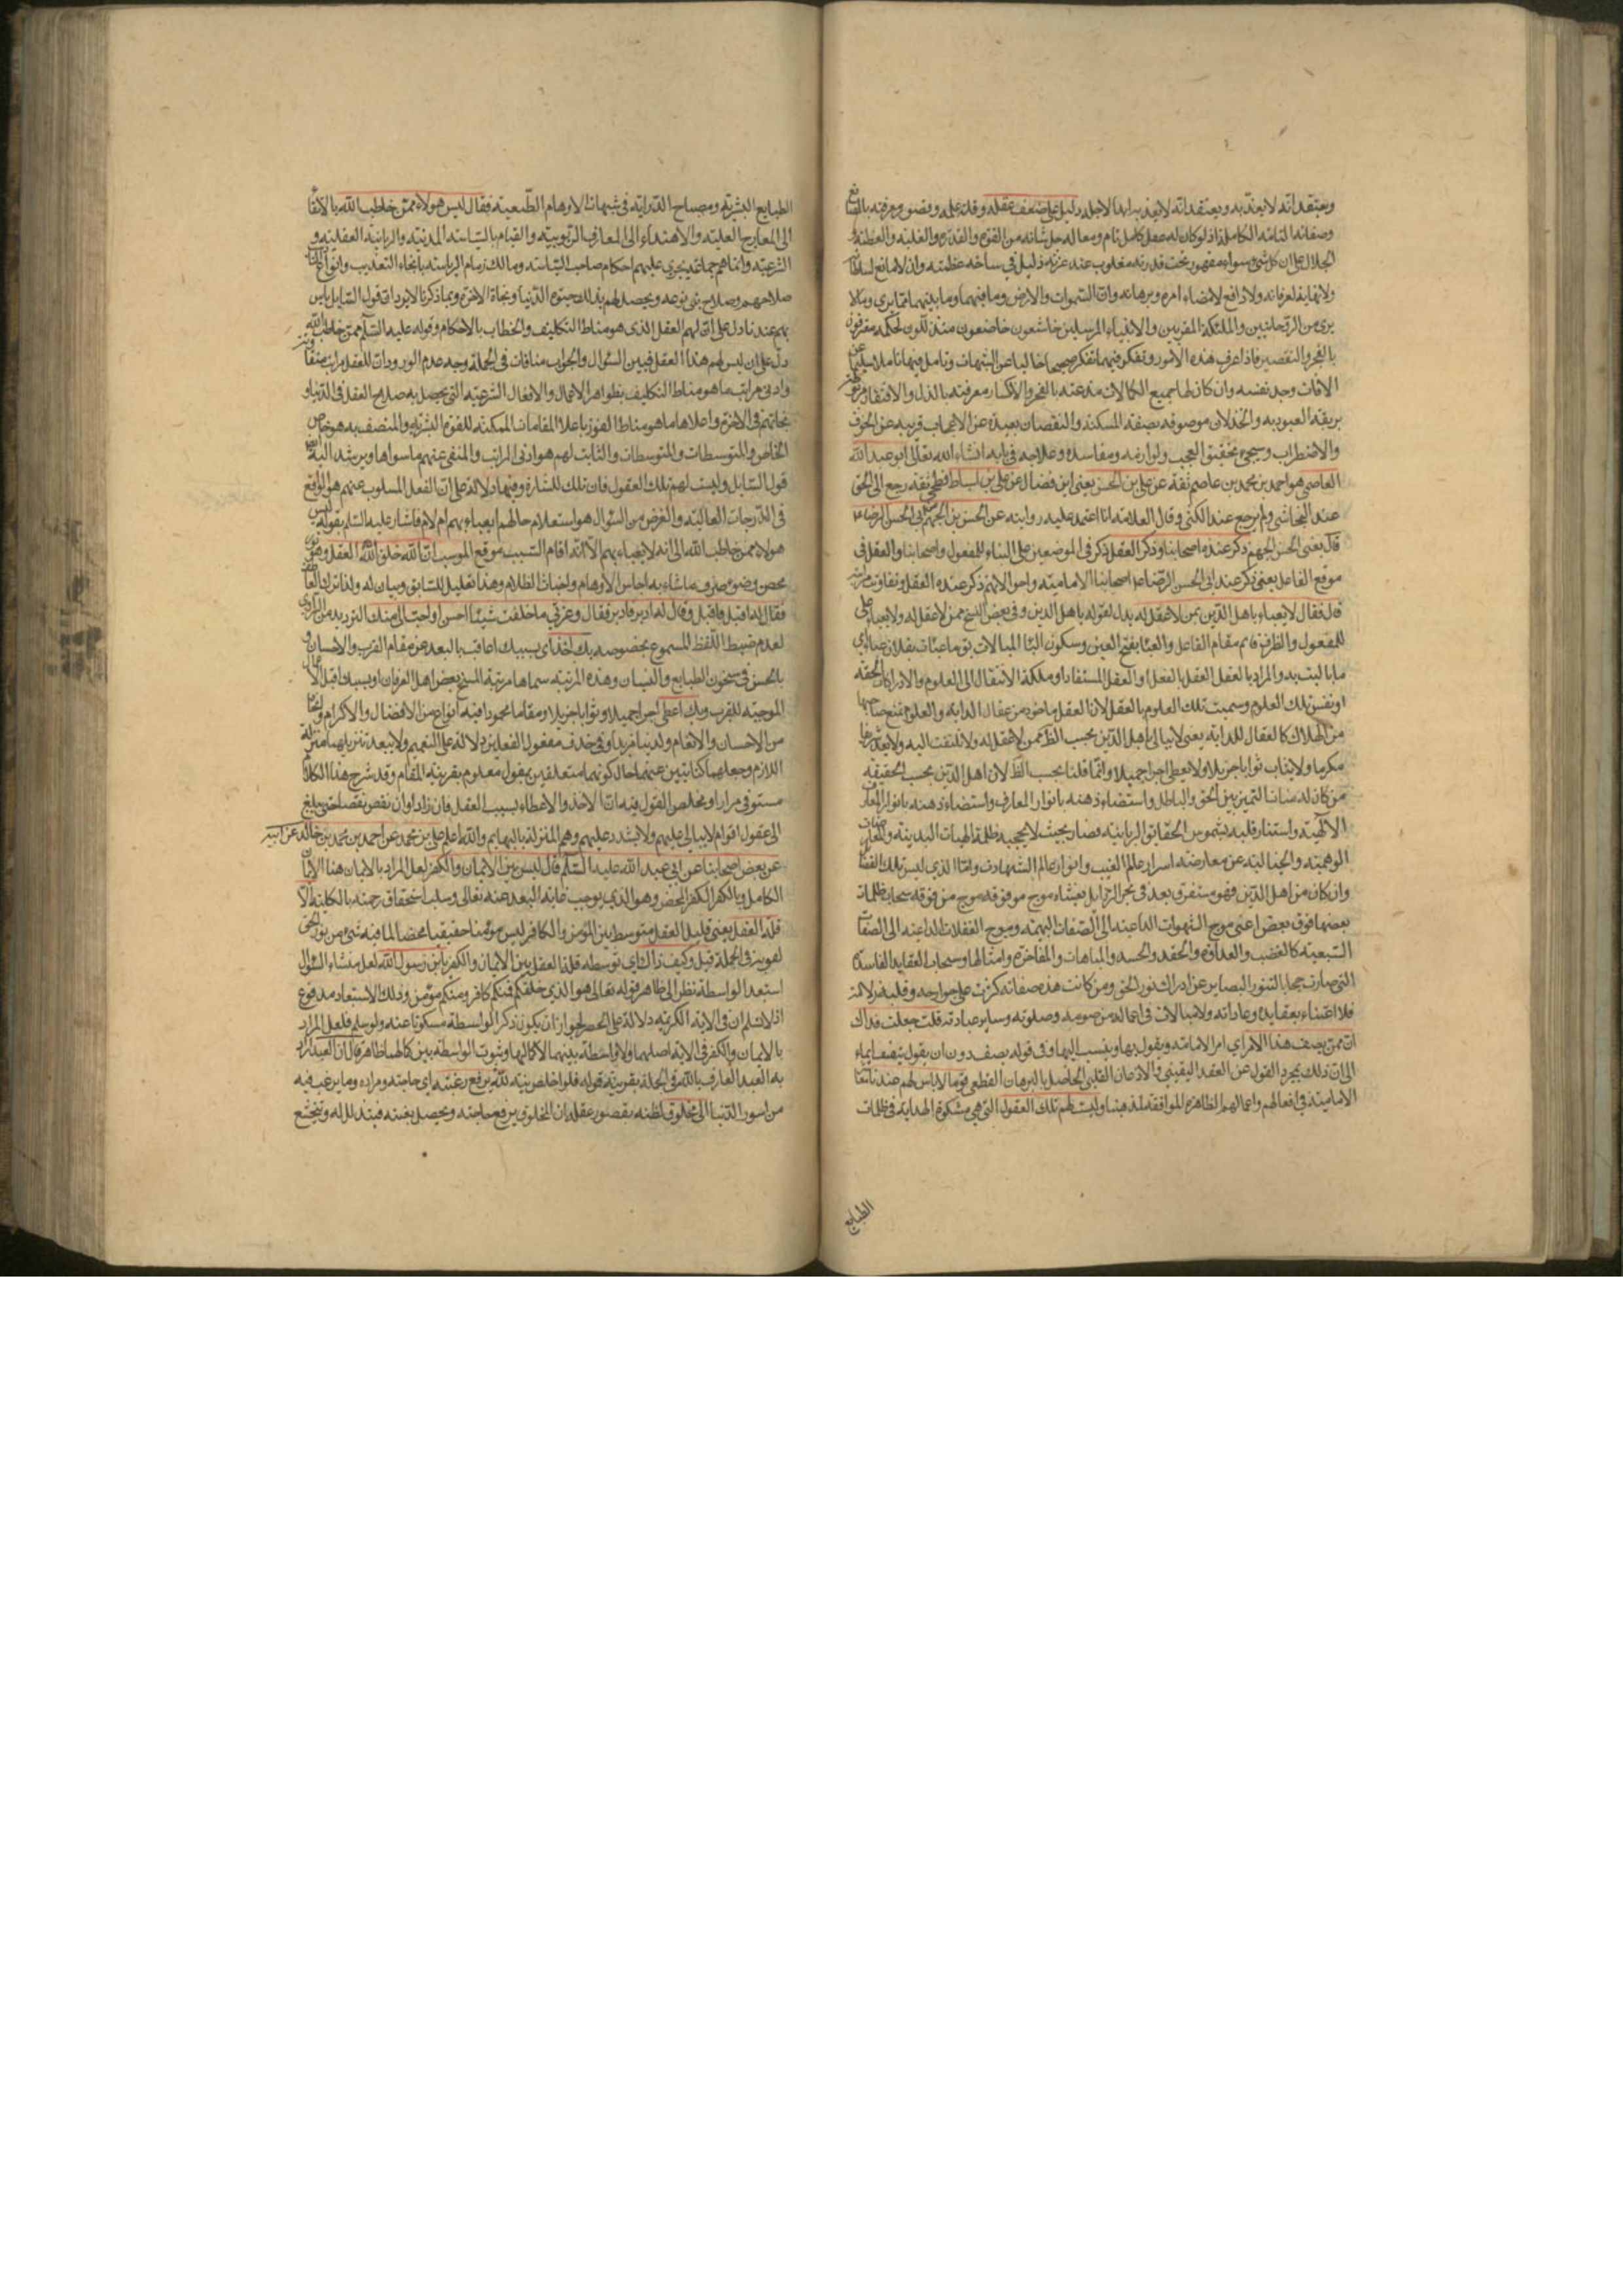 ويعتقد انه لا يعتد به ويعتقد انه لا يعذب ابدا لاجله دليل على ضعف عقله وقلة علمه وقصور معرفته بالصانع
وصفاته التامة الكاملة اذ لو كان له عقل كامل تام ومعاله جل شانه من القوة والقدرة والغلبة والعظمة و
الجلال علم ان كل شئ سواه مقهور تحت قدرته مغلوب عند عزته ذليل في ساحة عظمته وان لا مانع لسلطانه
ولا نهاية لعرفانه ولا دافع لامضاء امره وبرهانه وان السموات والارض وما فيهما وما بينهما مما يرى ومما لا
يرى من الروحانيين والملئكة المقربين والانبياء المرسلين خاشعون خاضعون متذللون لحكمه مقرون
بالعجز والتقصير فاذا عرف هذه الامور وتفكر فيها تفكرا صحيحا خاليا عن الشبهات وتامل فيها تاملا سليما عن
الافات وجد نفسه وان كان لها جميع الكمالات منه عنده بالعجز والانكسار معرفته بالذل والافتقار
بربقة العبودية والخذلان موصوفة بصفة المسكنة والنقصان بعيدة عن الاعجاب قريبة عن الخوف
والاضطراب وسيجئ تحقيق العجب ولوازمه ومفاسده وعلاجه في بابه انشاء الله تعالى ابو عبد الله
العاصمي هو احمد بن محمد بن عاصم ثقة عن علي بن الحسن يعني ابن فضال عن علي بن اسباط فطحي ثقة رجع الى الحق
عند النجاشي ولم يرجع عند الكشي وقال العلامة انا اعتمد على روايته عن الحسن بن الجهم عن ابي الحسن الرضا ع
قال يعني الحسن بن الجهم ذكر عنده اصحابنا وذكر العقل ذكر في الموضعين على البناء للمفعول واصحابنا والعقل في
موقع الفاعل يعني ذكر عند ابي الحسن الرضا ع اصحابنا الامامية واحوالهم ذكر عنده العقل وتفاوت مراتبه
قال فقال لا يعباء باهل الدين بمن لا عقل له بدل لقوله باهل الدين وفي بعض النسخ ممن لا عقل له ولا يعباء على
للمفعول والظرف قائم مقام الفاعل والعبا بفتح العين وسكون البا المبالات يق ما عبئات بفلان عباء اي
ما باليت به والمراد بالعقل العقل بالفعل او العقل المستفاد او ملكة الانتقال الى العلوم والادراكات الحقة
او نفس تلك العلوم وسميت تلك العلوم بالعقل لان العقل ماخوذ من عقال الدابة والعلوم تمنع صاحبها
من الهلاك كالعقال للدابة يعني لا يبالي باهل الدين بحسب الظ ممن لا عقل له ولا يلتفت اليه ولا يعد شريفا
مكرما ولا يثاب ثوابا جزيلا ولا يعطى اجرا جميلا وانما قلنا بحسب الظ لان اهل الدين بحسب الحقيقة
من كان له التميز بين الحق والباطل واستضاء ذهنه بانوار المعارف واستضاء ذهنه بانوار المعارف
الالهية واستنار قلبه بشموس الحقايق الربانية فصار بحيث لا يحجبه ظلمة الهيات البدنية والمعارضات
الوهمية والخيالية عن معارضة اسرار عالم الغيب وانوار عالم الشهادة واما الذي ليس بتلك الصفات
وان كان من اهل الدين فهو مستغرق بعد في بحر الرذايل يغشاه موج من فوقه موج من فوقه سحاب ظلمات
بعضها فوق بعض اعني موج الشهوات الداعية الى الصفات البهيمة وموج الغفلات الداعية الى الصفات
السبعية كالغضب والعداوة والحقد والحسد والمباهات والمفاخرة وامثالها وسحاب العقايد الفاسدة
التي صارت حجابا لتنور البصاير عن ادراك نور الحق ومن كانت هذه صفاته كررت على جوارحه وقلبه
فلا اعتناء بعقايده وعاداته ولا مبالات في اعماله من صومه وصلوته وساير عباداته قلت جعلت فداك
ان ممن يصف هذا الامر اي امر الامامة ويقول بها وينسب اليها وفي قوله يصف دون ان يقول يعتقد ايماء
الى ان ذلك مجرد القول عن العقد اليقيني والاذعان القلبي الحاصل بالبرهان القطعي قوما لا باس بهم عندنا
الامامية في افعالهم واعمالهم الظاهرة الموافقة لمذهبنا وليست لهم تلك العقول التي هي مشكوة الهداية في ظلمات
الطبايع
الطبايع البشرية ومصباح الدراية في شبهات الاوهام الطبيعية فقال ليس هولاء ممن خاطب الله بالارتقاء
الى المعارج العلية والاهتداء الى المعارف الربوبية والقيام بالسياسة المدنية والربانية العقلية و
الشرعية وانما هم جماعة يجرى عليهم احكام صاحب السياسة ومالك زمام الرياسة بانحاء التعذيب وانواع
صلاحهم وصلاح بني نوعه ويحصل لهم بذلك حيوة الدنيا ونجاة الاخرة وبما ذكرنا لا يرد ان قول السايل لا باس
بهم عندنا دل على ان لهم العقل الذي هو مناط التكليف والخطاب بالاحكام وقوله عليه السلم ممن خاطب الله
دل على ان ليس لهم هذا العقل فبين السؤال والجواب منافات في الجملة وجه عدم الورود ان للعقل مراتب متفاوتة
وادنى مراتبه ما هو مناط التكليف بظواهر الاعمال والافعال الشرعية التي يحصل به صلاح العقل في الدنيا و
نجاتهم في الاخرة واعلاها ما هو مناط الفوز باعلا المقامات الممكنة للقوة البشرية والمتصف به هو خاص
الخاص والمتوسطات والمتوسطات والثابت لهم هو ادنى المراتب والمنفي عنهم ما سواها ويرشد اليه
قول السايل وليست لهم تلك العقول فان تلك للشارة وفيها دلالة على ان الفعل المسلوب عنهم هو الواقع
في الدرجات العالية والغرض من السؤال هو استعلام حالهم ايعباء بهم ام لا فاشار عليه السلم بقوله ليس
هولاء ممن خاطب الله الى انه لا يعباء بهم الا انه اقام السبب موقع المسبب ان الله خلق العقل وهو نور
محض وضوء صرف ما شابه ارجاس الاوهام واخباث الظلام وهذا تعليل للسابق وبيان له ولذا ترك العاطف
فقال له اقبل فاقبل وقال له ادبر فادبر فقال وعزتي ما خلقت شيئا احسن او احب الي منك الترديد من الراوي
لعدم ضبط اللفظ المسموع بخصوصه بك اخذ اي بسببك اعاقب بالبعد عن مقام القرب والاحسان و
بالحبس في سجون الطبايع والنيران وهذه المرتبة سماها مرتبة المسخ بعض اهل العرفان او بسبب اقبال
الموجبة للقرب وبك اعطي اجرا جميلا وثوابا جزيلا ومقاما محمودا فيه انواع من الافضال والاكرام وانحاء
من الاحسان والانعام ولدينا مزيد وفي حذف مفعول الفعلين دلالة على التعميم ولا يبعد تنزيلهما منزلة
اللازم وجعلهما كنايتين عنهما حال كونهما متعلقين بمفعول معلوم بقرينة المقام وقد شرح هذا الكلام
مستوفى مرارا ومخلص القول فيه ان الاخذ والاعطاء بسبب العقل فان زاد زادا وان نقص نقصا حتى يبلغ
الى عقول اقوام لا يبالي عليهم ولا يشدد عليهم وهم المنزلة بالبهايم والله اعلم علي بن محمد عن احمد بن محمد بن خالد عن ابيه
عن بعض اصحابنا عن ابي عبد الله عليه السلم قال ليس بين الايمان والكفر لعل المراد بالايمان هنا الايمان
الكامل وبالكفر الكفر المحض وهو الذي يوجب غاية البعد عنه تعالى وسلب استحقاق رحمته بالكلية الا
قلة العقل يعني قليل العقل متوسط بين المؤمن والكافر ليس مؤمنا حقيقيا محضا لما فيه شئ من نور الحق
لهويته في الجملة قيل وكيف ذاك اي توسطه قلة العقل بين الايمان والكفر يابن رسول الله لعل منشاء السؤال
استبعد الواسطة نظرا الى ظاهر قوله تعالى هو الذي خلقكم فمنكم كافر ومنكم مؤمن وذلك الاستبعاد مدفوع
اذ لا نسلم ان في الاية الكريمة دلالة على الحصر لجواز ان يكون ذكر الواسطة مسكوتا عنه ولو سلم فلعل المراد
بالايمان والكفر في الاية اصلهما ولا واسطة بينهما لا كمالهما وثبوت الواسطة بين كمالهما ظاهر قال ان العبد اراد
به العبد العارف بالله في الجملة بقرينة قوله فلو اخلص نيته لله يرفع رغبته اي حاجته ومراده وما يرغب فيه
من امور الدنيا الى مخلوق لظنه بقصور عقله ان المخلوق يرفع حاجته ويحصل بغيته فيتذلل له ويخضع